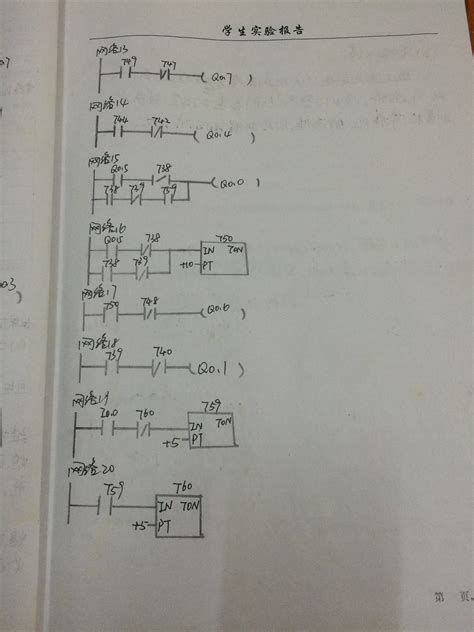 学生实验报告
网络13
T49 T47
(Q0.7)
网络14
T44 T42
(Q0.4)
网络15
Q0.5 T38
(Q0.0)
T38 T39 T59
网络16
Q0.5 T38 T50
IN TON
T38 T39
+10 PT
网络17
T50 T48
(Q0.6)
网络18
T39 T40
(Q0.1)
网络19
I0.0 T60 T59
IN TON
+5 PT
网络20
T59 T60
IN TON
+5 PT
第 页